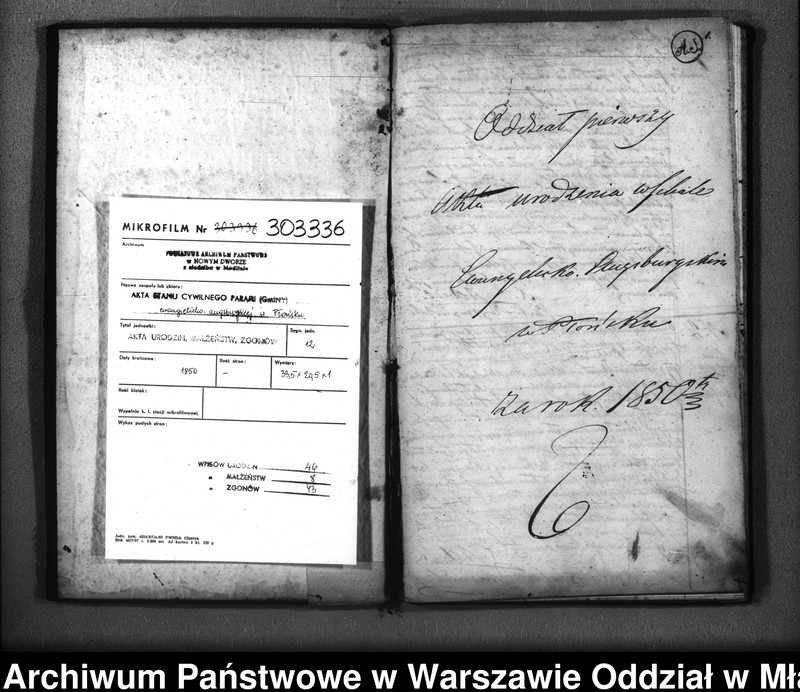 MIKROFILM Nr 303336 303336
Archiwum
POWIATOWE ARCHIWUM PAŃSTWOWE
w NOWYM DWORZE
z siedzibą w Modlinie
Nazwa zespołu lub zbioru:
AKTA STANU CYWILNEGO PARAFII (GMINY)
ewangielicko-augsburskiej w Płońsku
Tytuł jednostki:
AKTA URODZIN, MAŁŻEŃSTW, ZGONÓW
Sygn. jedn.
12
Daty krańcowe:
1850
Ilość stron:
–
Wymiary:
39,5 × 20,5 × 1
Ilość klatek:
Wypełnia k. i. stacji mikrofilmowej
Wykaz pustych stron:
WPISÓW URODZIN 44
" MAŁŻEŃSTW 8
" ZGONÓW 43
A.S.
1.
Oddział pierwszy
Akta urodzenia
Ewangelicko Augsburgskim
w Płońsku
za rok. 1850
Archiwum Państwowe w Warszawie Oddział w Mła